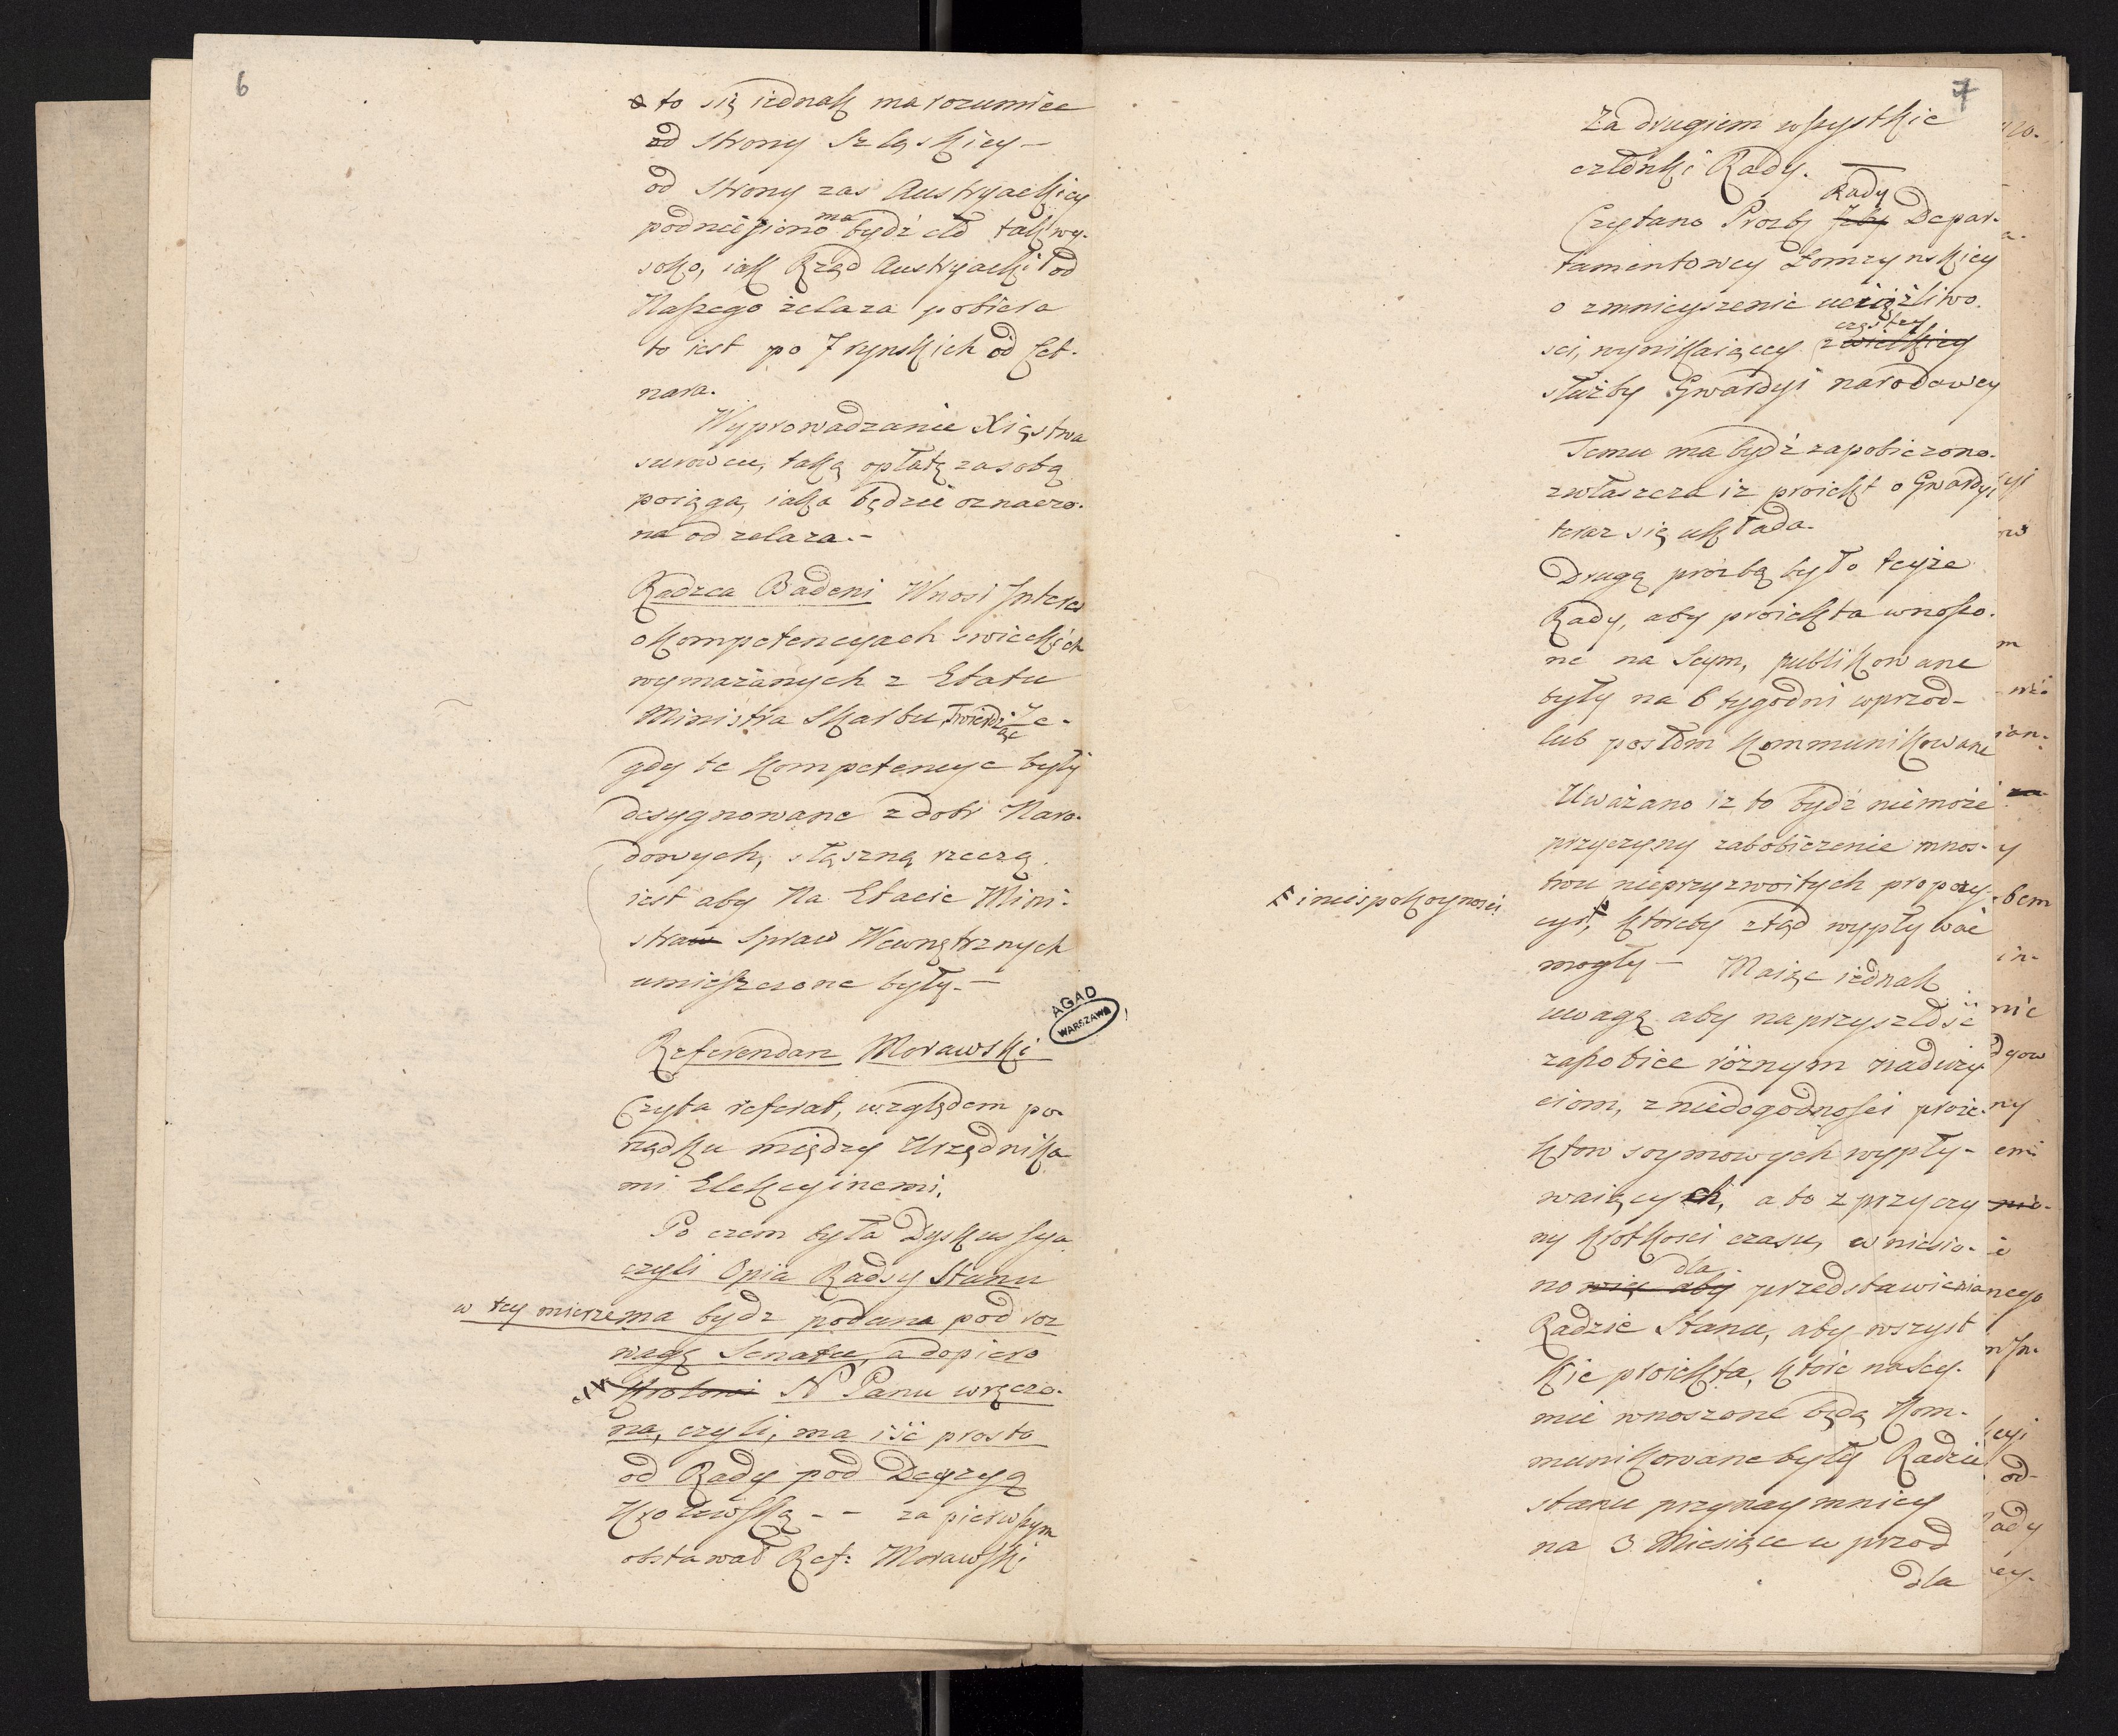 6
a to się iednak ma rozumiec
od strony Szląskiey –
od strony zas Austryackiey
podniesiono ma bydź cło tak wy-
soko, iak Rząd Austryacki od
Naszego żelaza pobiera
to iest po 7 rynskich od Cet-
nara.
Wyprowadzanie Xięstwa
surowcu, taką opłatę za sobą
pociąga, iaka będzie oznaczo-
na od zelaza.–
Radzca Badeni Wnosi Interes
o kompetencyach swieckich
wymazanych z Etatu
Ministra Skarbu, twierdząc że-
gdy te kompetencye były
desygnowane z dobr Naro-
dowych, słuszną rzeczą
iest aby Na Etacie Mini-
straw Spraw Wewnętrznych
umieszczone były.–
AGAD
WARSZAWA
Referendarz Morawski
Czyta referat, względem po-
rządku między Urzędnika
mi Elekcyinemi.
Po czem była Dyskussya
czyli Opia Radsy Stanu
w tey mierze ma bydz podana pod roz
wagę Senatu, a dopiero
Krolowi N Panu wręczo-
na, czyli, ma iść prosto
od Rady pod Decyzyą
Krolewską – – za pierwszym
obstawał Ref: Morawski
7
Za drugiem wszystkie
członki Rady.
Rady
Czytano Prozby Izby Depar-
tamentowey Łomzynskiey
o zmnieyszenie uciążliwo-
częstey
sci, wynikaiącey z wielkiey
służby Gwardyi narodowey
Temu ma bydź zapobieżono-
zwłaszcza iz proiekt o Gwardyi
teraz się układa.
Drugą prozbą było teyże
Rady, aby proiekta wnoszo-
ne na Seym, publikowane
były na 6 tygodni wprzod–
lub posłom kommunikowane
Uważano iz to bydź niemoże
przyczyny zabobieżenie mnos-
twu nieprzyzwoitych propozy-
F i niespokoynosci
cyi, ktoreby ztąd wypływać
mogły – Maiąc iednak
uwagę aby na przyszłość
zapobiec różnym naduży
ciom, z niedogodnosci proie-
ktow seymowych wypły-
waiących, a to z przyczy
ny krotkosci czasu, wniesio-
dla
no więc aby przedstawienia
Radzie Stanu, aby wszyst
kie proiekta, ktore na sey-
mie wnoszone będą kom-
munikowane były Radzie
stanu przynaymniey
na 3 Miesiące w przod
dla